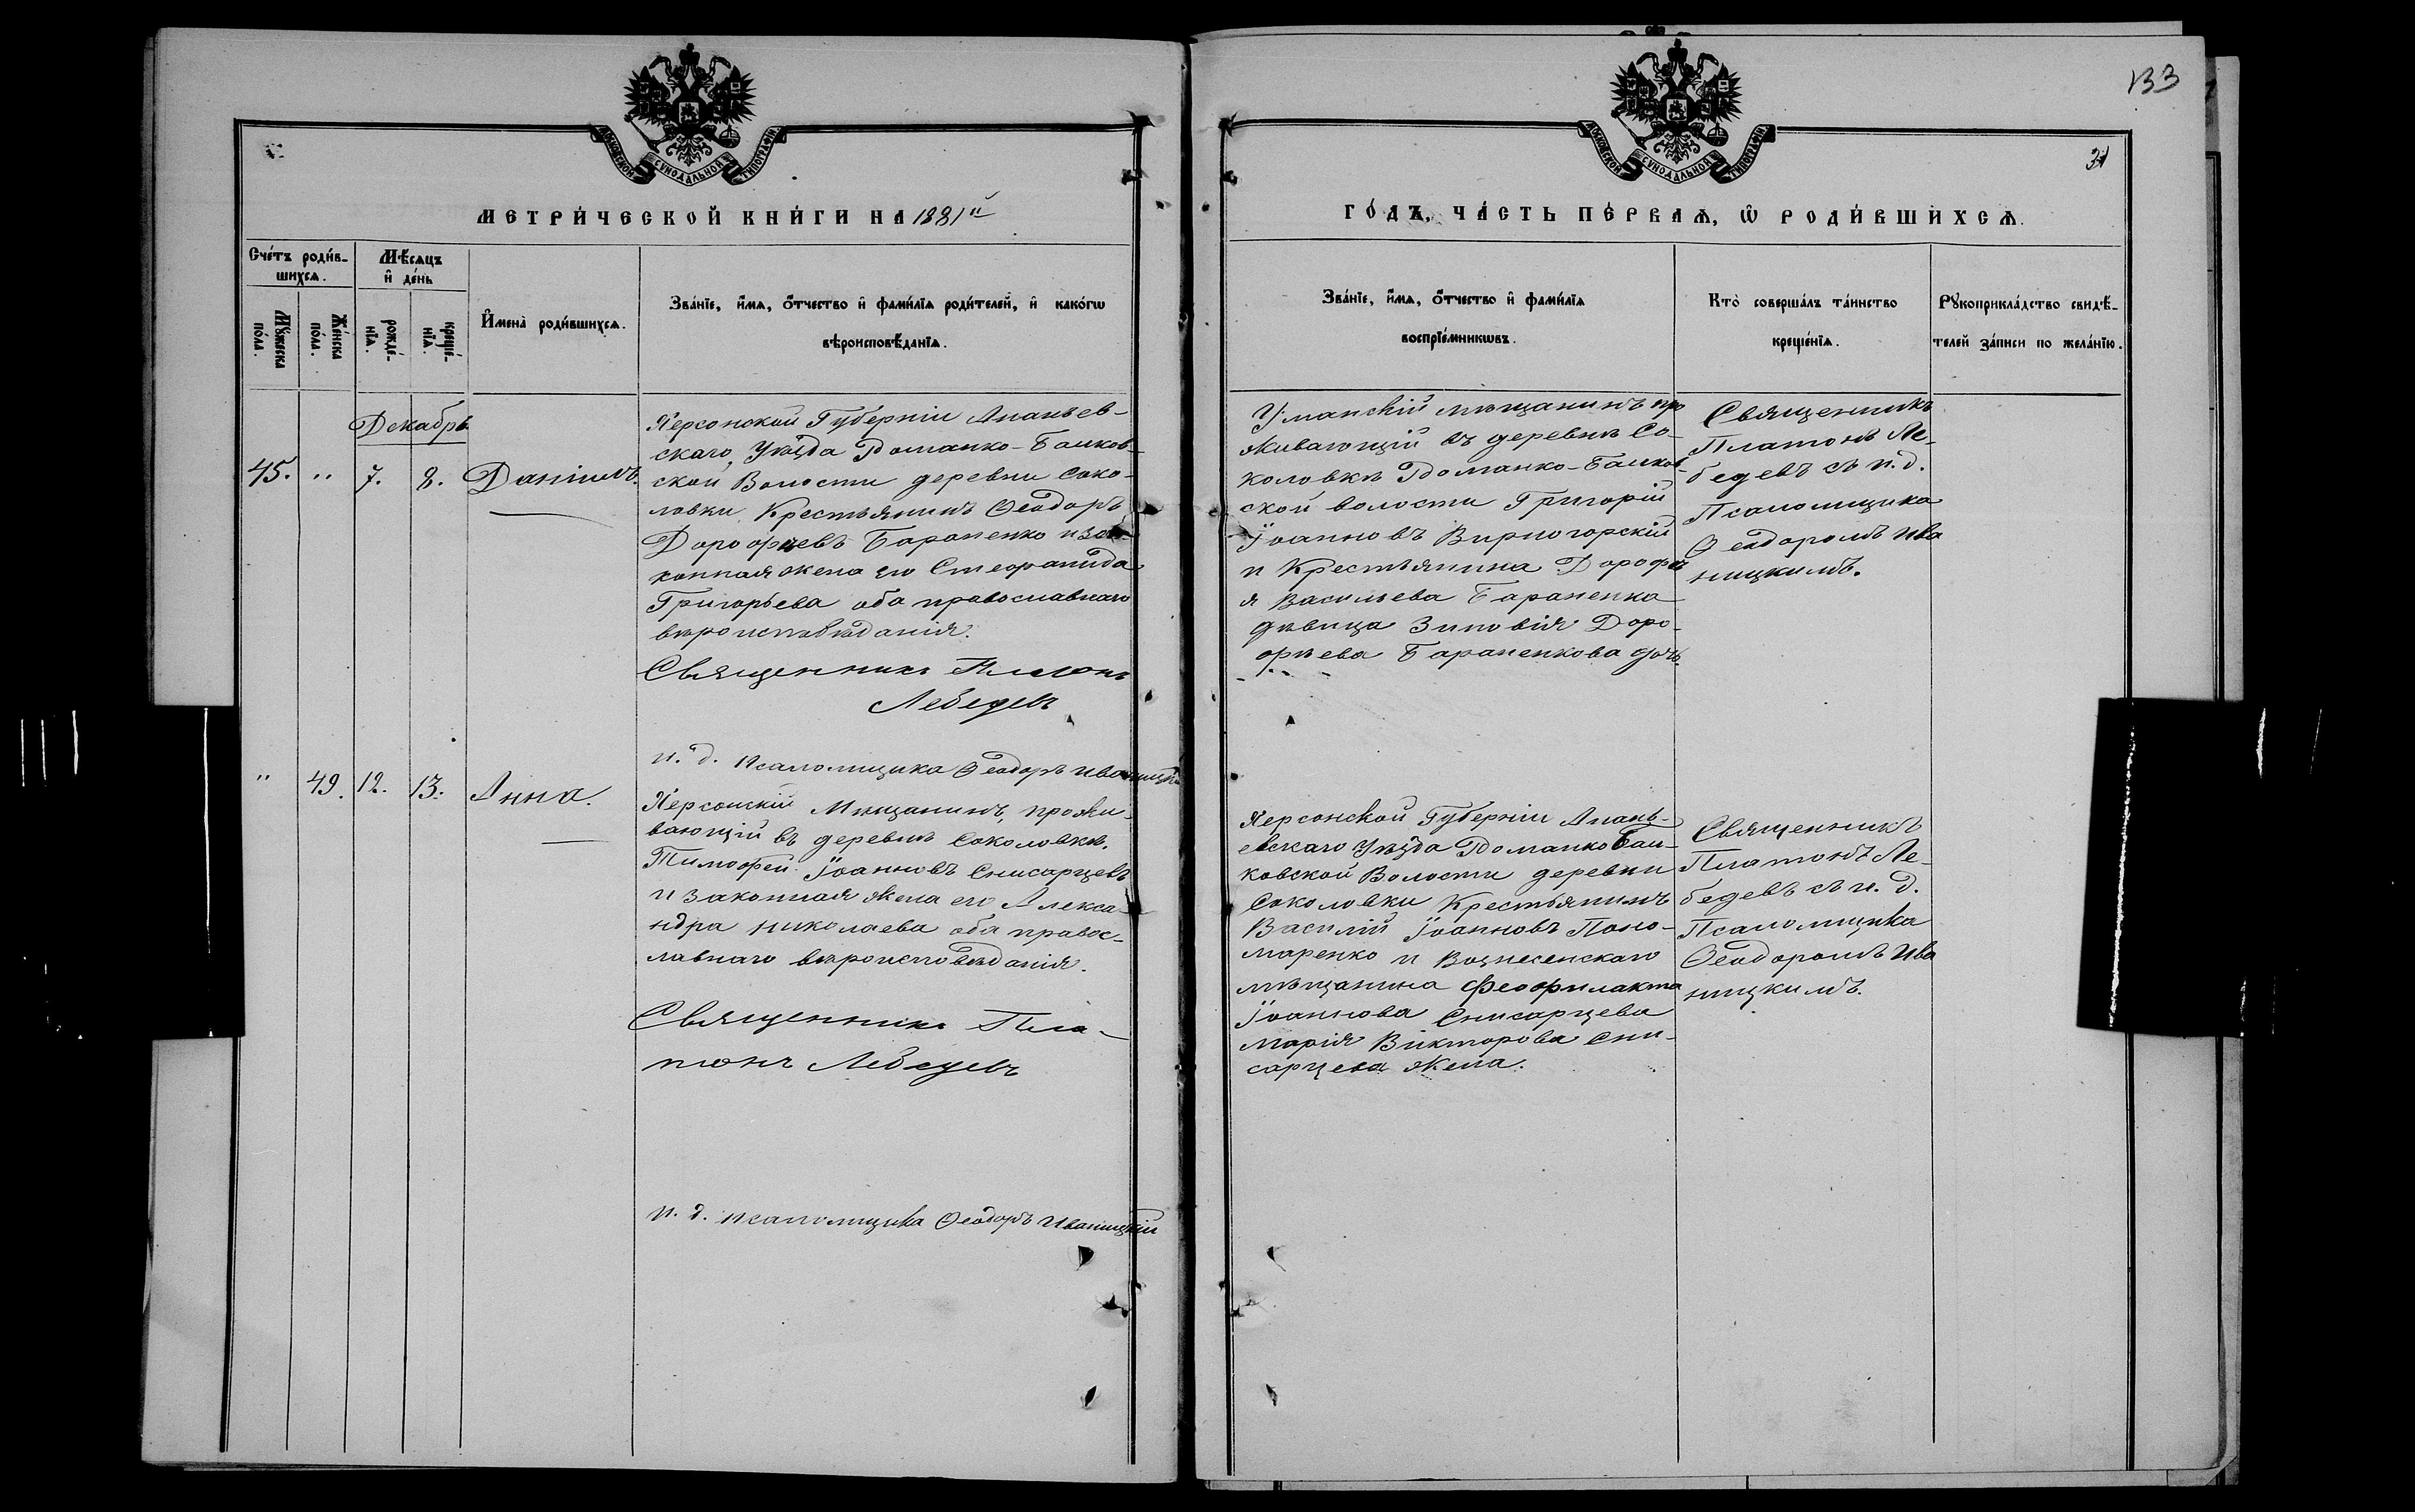 133
31
МОСКОВСКОЙ СѴНОДАЛЬНОЙ ТИПОГРАФІИ
МОСКОВСКОЙ СѴНОДАЛЬНОЙ ТИПОГРАФІИ
МЕТРИ́ЧЕСКОЙ КНИ́ГИ НА 1881й
ГО́ДЪ, ЧА́СТЬ ПЕ́РВАѦ, Ѡ҆ РОДИ́ВШИХСѦ.
Сче́тъ роди́в-
шихсѧ.
Мѣ́сѧцъ
и҆ де́нь
Мꙋ́жеска
по́ла.
Же́нска
по́ла.
рожде́-
нїѧ.
креще́-
нїѧ.
И҆мена̀ роди́вшихсѧ.
Зва́нїе, и҆́мѧ, ѻ҆́тчество и҆ фами́лїѧ роди́телей, и҆ како́гѡ
вѣроисповѣ́данїѧ.
Зва́нїе, и҆́мѧ, ѻ҆́тчество и҆ фами́лїѧ
воспрїе́мникѡвъ.
Кто̀ соверша́лъ та́инство
креще́нїѧ.
Рꙋкоприкла́дство свидѣ́-
телей за́писи по жела́нїю.
Декабрь
45. " 7. 8. Даніилъ.
Херсонской Губерніи Ананьев-
скаго Уѣзда Доманко-Балков-
ской Волости деревни Соко-
ловки Крестьянинъ Ѳеодоръ
Дорофѣевъ Бараненко и за-
конная жена его Стефанида
Григорьева оба православнаго
вѣроисповѣданія.
Священникъ Платонъ
Лебедевъ
и. д. псаломщика Ѳеодоръ Иваницкій
Уманскій мѣщанинъ про
живающій въ деревнѣ Со-
коловкѣ Доманко-Балков-
ской волости Григорій
Іоанновъ Вирногорскій
и Крестьянина Дорофѣ
я Васильева Бараненка
дѣвица Зиновія Доро-
фѣева Бараненкова дочь.
Священникъ
Платонъ Ле-
бедевъ съ и. д.
Псаломщика
Ѳеодоромъ Ива
ницкимъ.
" 49. 12. 13. Анна.
Херсонскій Мѣщанинъ, прожи-
вающій въ деревнѣ Соколовкѣ,
Тимофей Іоанновъ Снисарцевъ
и законная жена его Алекса-
ндра Николаева оба правос-
лавнаго вѣроисповѣданія.
Священникъ Пла-
тонъ Лебедевъ
и. д. псаломщика Ѳеодоръ Иваницкій
Херсонской Губерніи Анань-
евскаго Уѣзда Доманко Бал-
ковской Волости деревни
Соколовки Крестьянинъ
Василій Іоанновъ Поно-
маренко и Вознесенскаго
мѣщанина Феофилакта
Іоаннова Снисарцева
Марія Викторова Сни-
сарцева жена.
Священникъ
Платонъ Ле-
бедевъ съ и. д.
Псаломщика
Ѳеодоромъ Ива
ницкимъ.